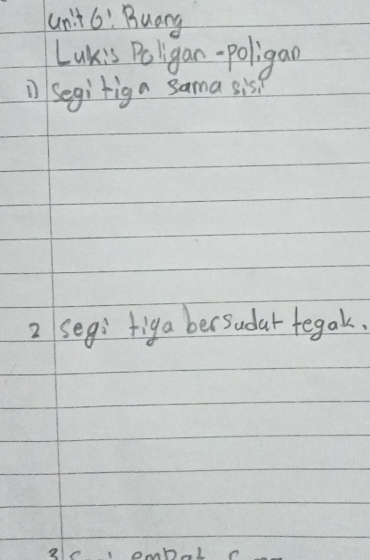 unit 6: Ruang
Lukis Poligan-poligan
1) segi tiga sama sisi
2 segi tiga bersudut tegak.
3 empat